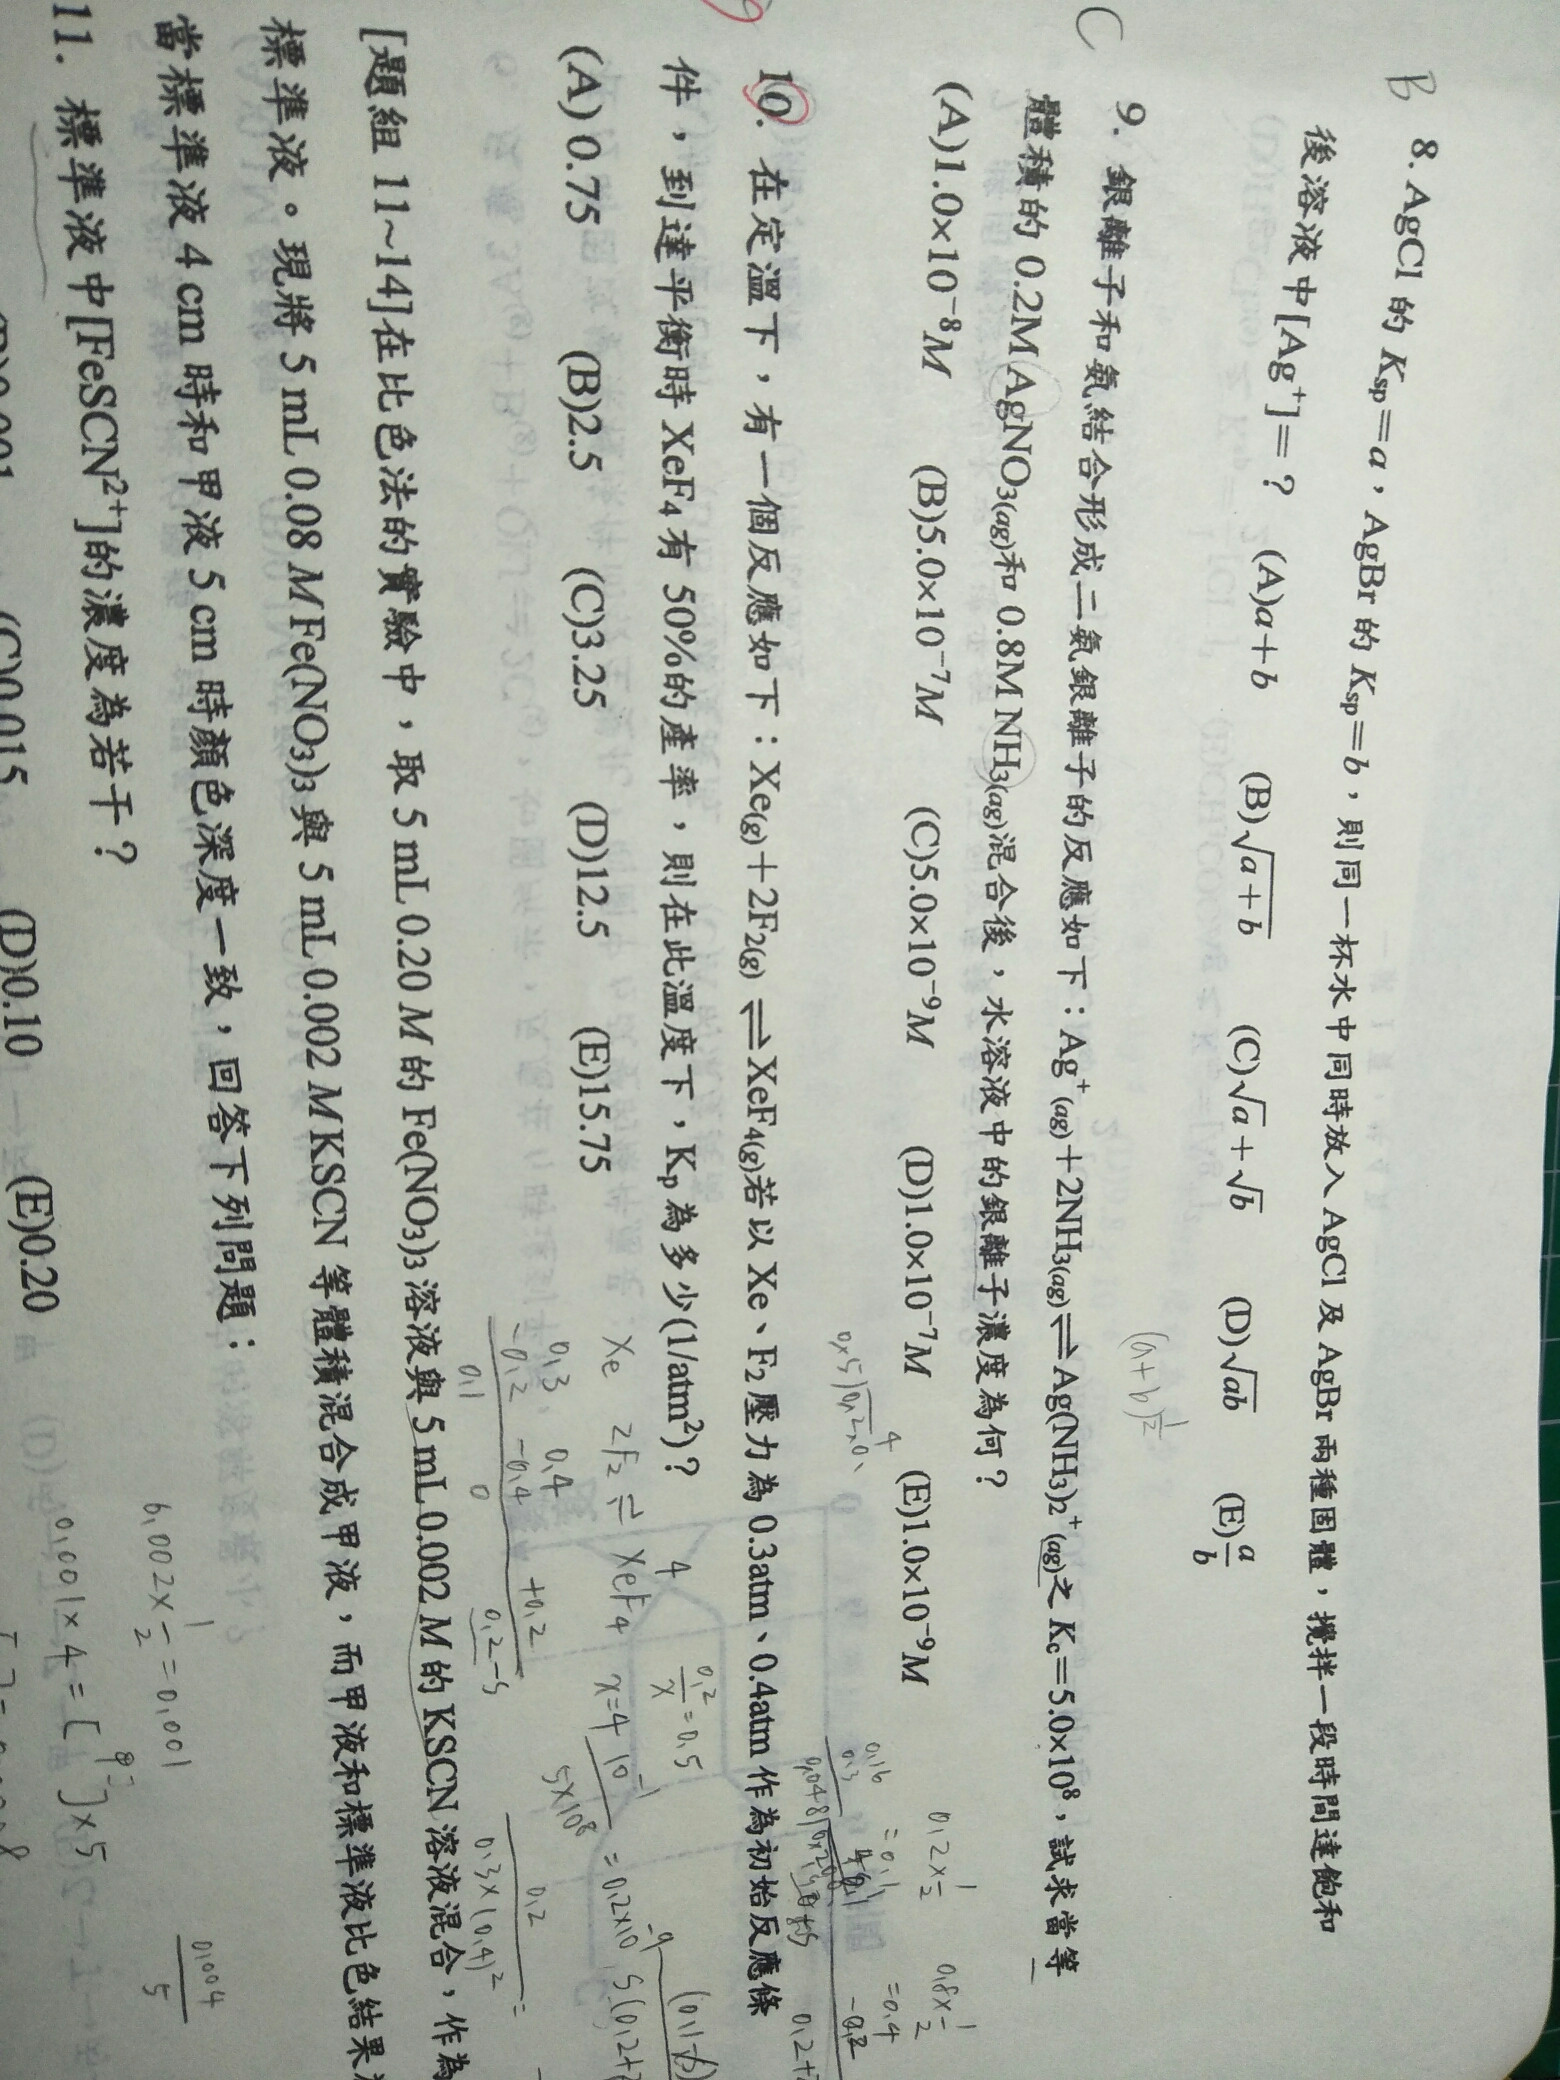 B
8. AgCl 的 Ksp=a，AgBr 的 Ksp=b，則同一杯水中同時放入 AgCl 及 AgBr 兩種固體，攪拌一段時間達飽和
後溶液中[Ag⁺]=？ (A)a+b (B)√(a+b) (C)√a+√b (D)√ab (E)a/b
(a+b)^½
C
9. 銀離子和氨結合形成二氨銀離子的反應如下：Ag⁺(ag)+2NH₃(ag)⇌Ag(NH₃)₂⁺(ag)之 Kc=5.0×10⁸，試求當等
體積的 0.2M AgNO₃(ag)和 0.8M NH₃(ag)混合後，水溶液中的銀離子濃度為何？
(A)1.0×10⁻⁸M (B)5.0×10⁻⁷M (C)5.0×10⁻⁹M (D)1.0×10⁻⁷M (E)1.0×10⁻⁹M
0.2×½ 0.8×½
=0.1 =0.4
10. 在定溫下，有一個反應如下：Xe(g)+2F₂(g)⇌XeF₄(g)若以 Xe、F₂壓力為 0.3atm、0.4atm 作為初始反應條
件，到達平衡時 XeF₄有 50%的產率，則在此溫度下，Kp為多少(1/atm²)？
(A) 0.75 (B)2.5 (C)3.25 (D)12.5 (E)15.75
Xe 2F₂ ⇌ XeF₄
0.3 0.4
-0.2 -0.4 +0.2
0.1 0 0.2
0.2/x=0.5
x=4
[題組 11~14]在比色法的實驗中，取 5 mL 0.20 M 的 Fe(NO₃)₃溶液與 5 mL 0.002 M 的 KSCN 溶液混合，作為
標準液。現將 5 mL 0.08 M Fe(NO₃)₃與 5 mL 0.002 M KSCN 等體積混合成甲液，而甲液和標準液比色結果
當標準液 4 cm 時和甲液 5 cm 時顏色深度一致，回答下列問題：
11. 標準液中[FeSCN²⁺]的濃度為若干？
0.002×½=0.001
0.004/5
0.001×4=[甲]×5
(C)0.015 (D)0.10 (E)0.20